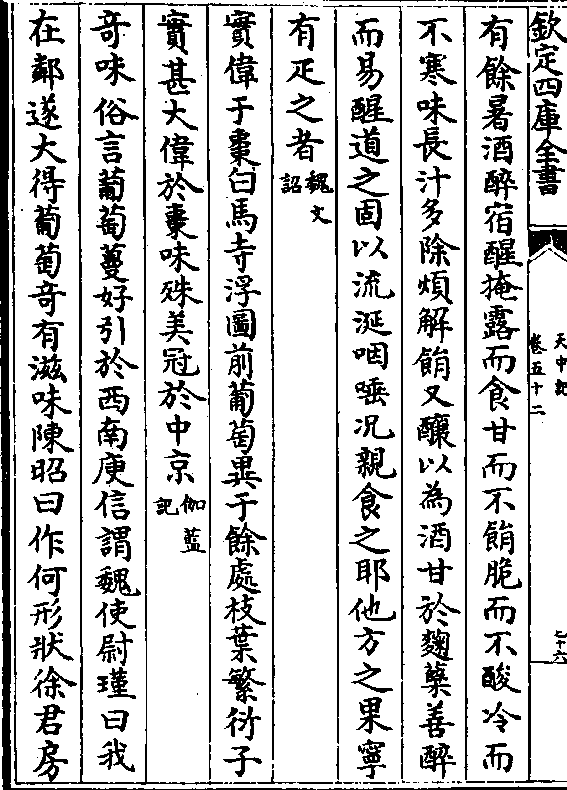 欽定四庫全書
天中記
卷五十二
七十六
有餘暑酒醉宿醒掩露而食甘而不䬼脆而不酸冷而
不寒味長汁多除煩解䬼又釀以為酒甘於麴蘖善醉
而易醒道之固以流涎咽唾况親食之耶他方之果寧
有疋之者魏文詔
實偉于棗白馬寺浮圖前葡萄異于餘處枝葉繁衍子
實甚大偉於棗味殊美冠於中京伽藍記
奇味俗言葡萄蔓好引於西南庾信謂魏使尉瑾曰我
在鄴遂大得葡萄奇有滋味陳昭曰作何形狀徐君房